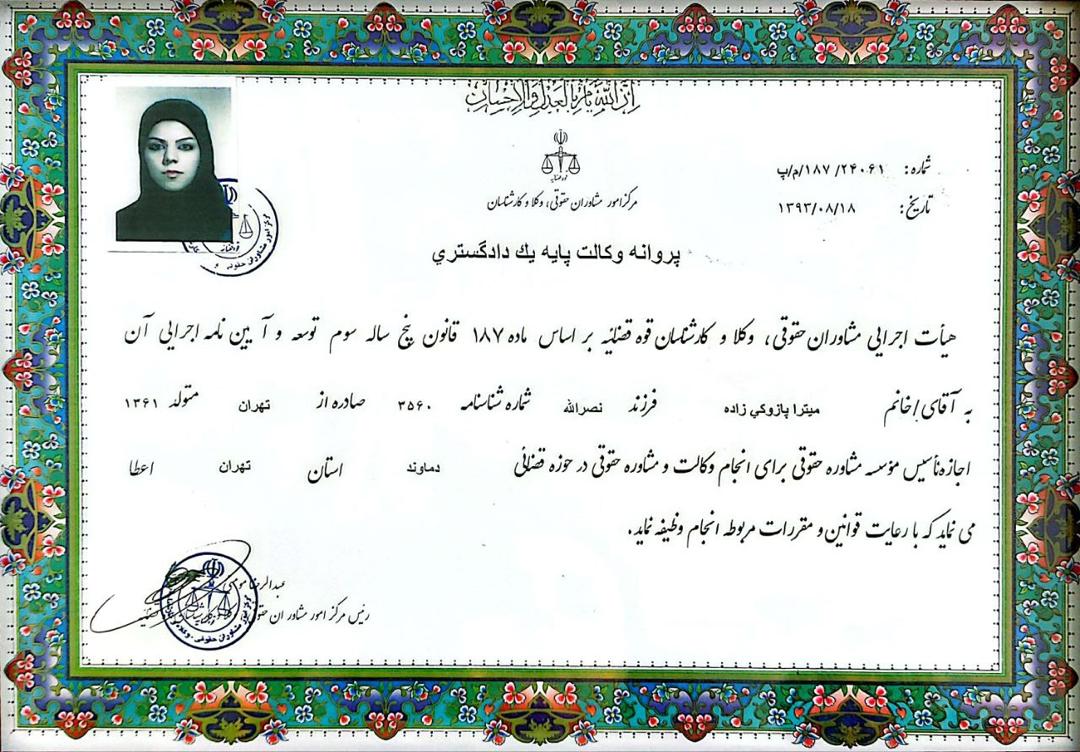 إن الله يأمر بالعدل والإحسان
قوه قضائیه
مرکز امور مشاوران حقوقی، وکلا و کارشناسان
شماره: ۲۴۰۶۱/ ۱۸۷/م/پ
تاریخ: ۱۳۹۳/۰۸/۱۸
پروانه وكالت پايه يك دادگستري
هیأت اجرایی مشاوران حقوقی، وکلا و کارشناسان قوه قضائیه بر اساس ماده ۱۸۷ قانون پنج ساله سوم توسعه و آیین نامه اجرایی آن
به آقای/خانم میترا پازوكي زاده فرزند نصرالله شماره شناسنامه ۳۵۶۰ صادره از تهران متولد ۱۳۶۱
اجازه تأسیس مؤسسه مشاوره حقوقی برای انجام وکالت و مشاوره حقوقی در حوزه قضائی دماوند استان تهران اعطا
می نماید که با رعایت قوانین و مقررات مربوطه انجام وظیفه نماید.
عبدالرضا
رئیس مرکز امور مشاوران